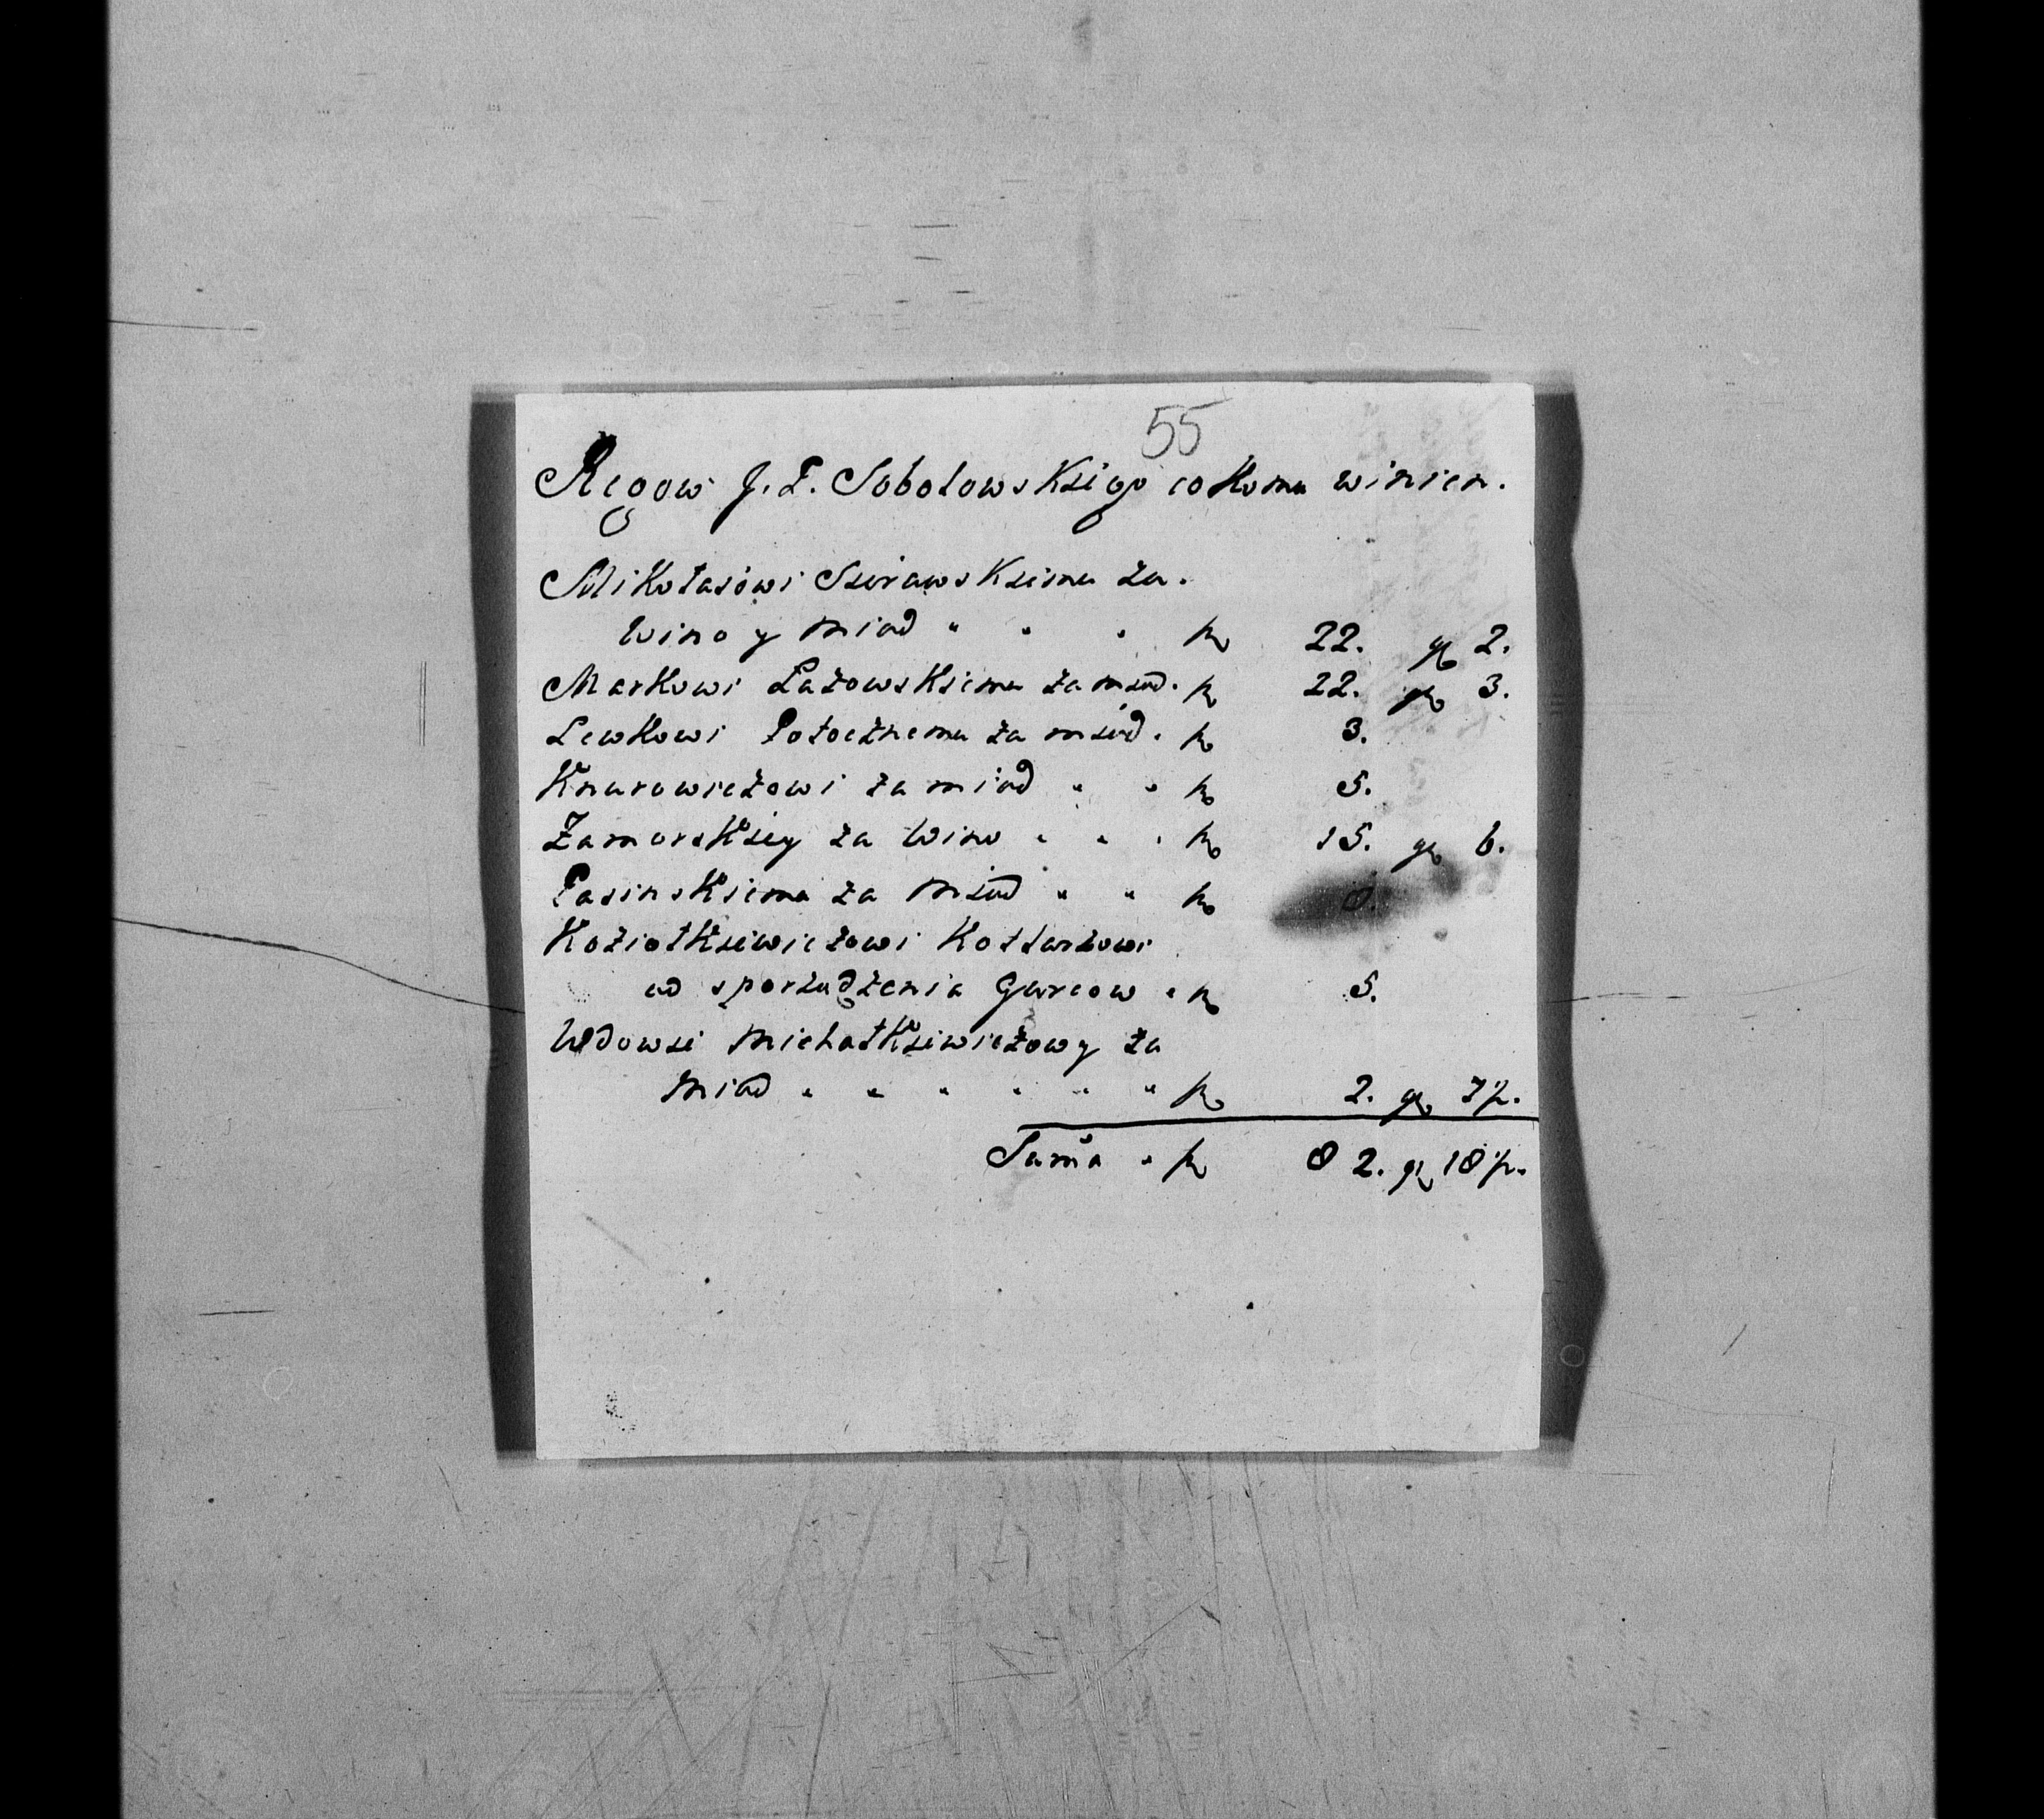 55
Regow J. P. Sobolowskiego co komu winien.
Mikołaiowi Surawskiemu za
Wino y miod " " " R 22. gr 2.
Markowi Łazowskiemu za miod. R 22. gr 3.
Lewkowi Potocznemu za miod. R 3.
Knurowiczowi za miod " " R 5.
Zamorskiey za Wino " " " R 15. gr 6.
Pasinskiemu za Miod " " R 8.
Koziołkiewiczowi Kotlarzowi
od sporządzenia Garcow " R 5.
Wdowie Michałkiewiczowy za
Miod " " " " " " R 2. gr 7 1/2.
Suma " R 82. gr 18 1/2.